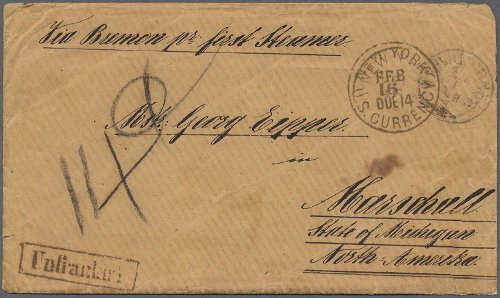 Via Bremen pr first Steamer
NEW YORK
FEB
16
DUE 14
U.S. CURRENCY
Mr. Georg Eipper.
in
14
Marschall
State of Michigan
North-Amerika.
Unfrankirt